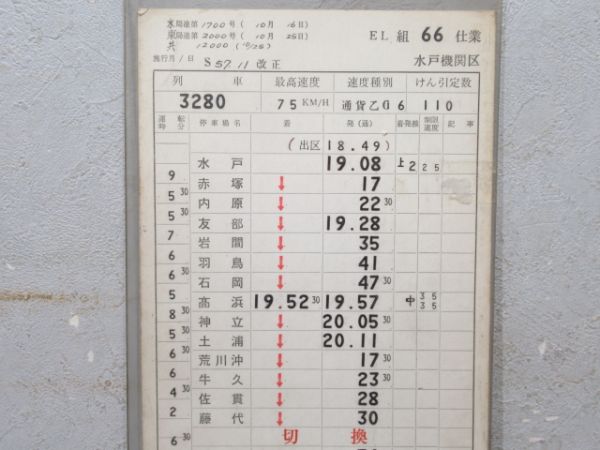 水陽達第1700号(10月16日)
東陽達第2000号(10月25日)
共 12000(10/26)
施行月/日 S57.11改正
EL組 66 仕業
水戸機関区
列車 最高速度 速度種別 けん引定数
3280 75KM/H 通貨乙G6 110
運転時分 停車場名 着 発(通) 着発線 制限速度 記事
(出区 18.49)
水戸 19.08 上2 25
9
赤塚 ↓ 17
5 30
内原 ↓ 22 30
5 30
友部 ↓ 19.28
7
岩間 ↓ 35
6
羽鳥 ↓ 41
6 30
石岡 ↓ 47 30
5
高浜 19.52 30 19.57 中 35 35
8 30
神立 ↓ 20.05 30
5 30
土浦 ↓ 20.11
6 30
荒川沖 ↓ 17 30
6
牛久 ↓ 23 30
4 30
佐貫 ↓ 28
2
藤代 ↓ 30
切換
6 30